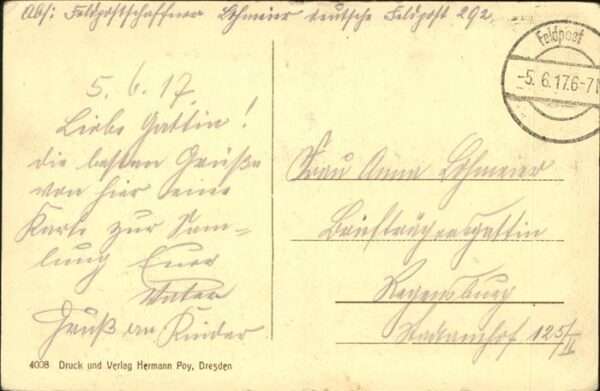 Abs: Feldpostschaffner Lohmeier deutsche Feldpost 292.
Feldpost
-5.6.17.6-7N
5.6.17.
Liebe Gattin!
die besten Grüße
von hier eine
Karte zur Sam-
lung Euer
Vater
Gruß an Kinder
Frau Anna Lohmeier
Briefträgersgattin
Regensburg
Stadtamhof 125/II
4008 Druck und Verlag Hermann Poy, Dresden